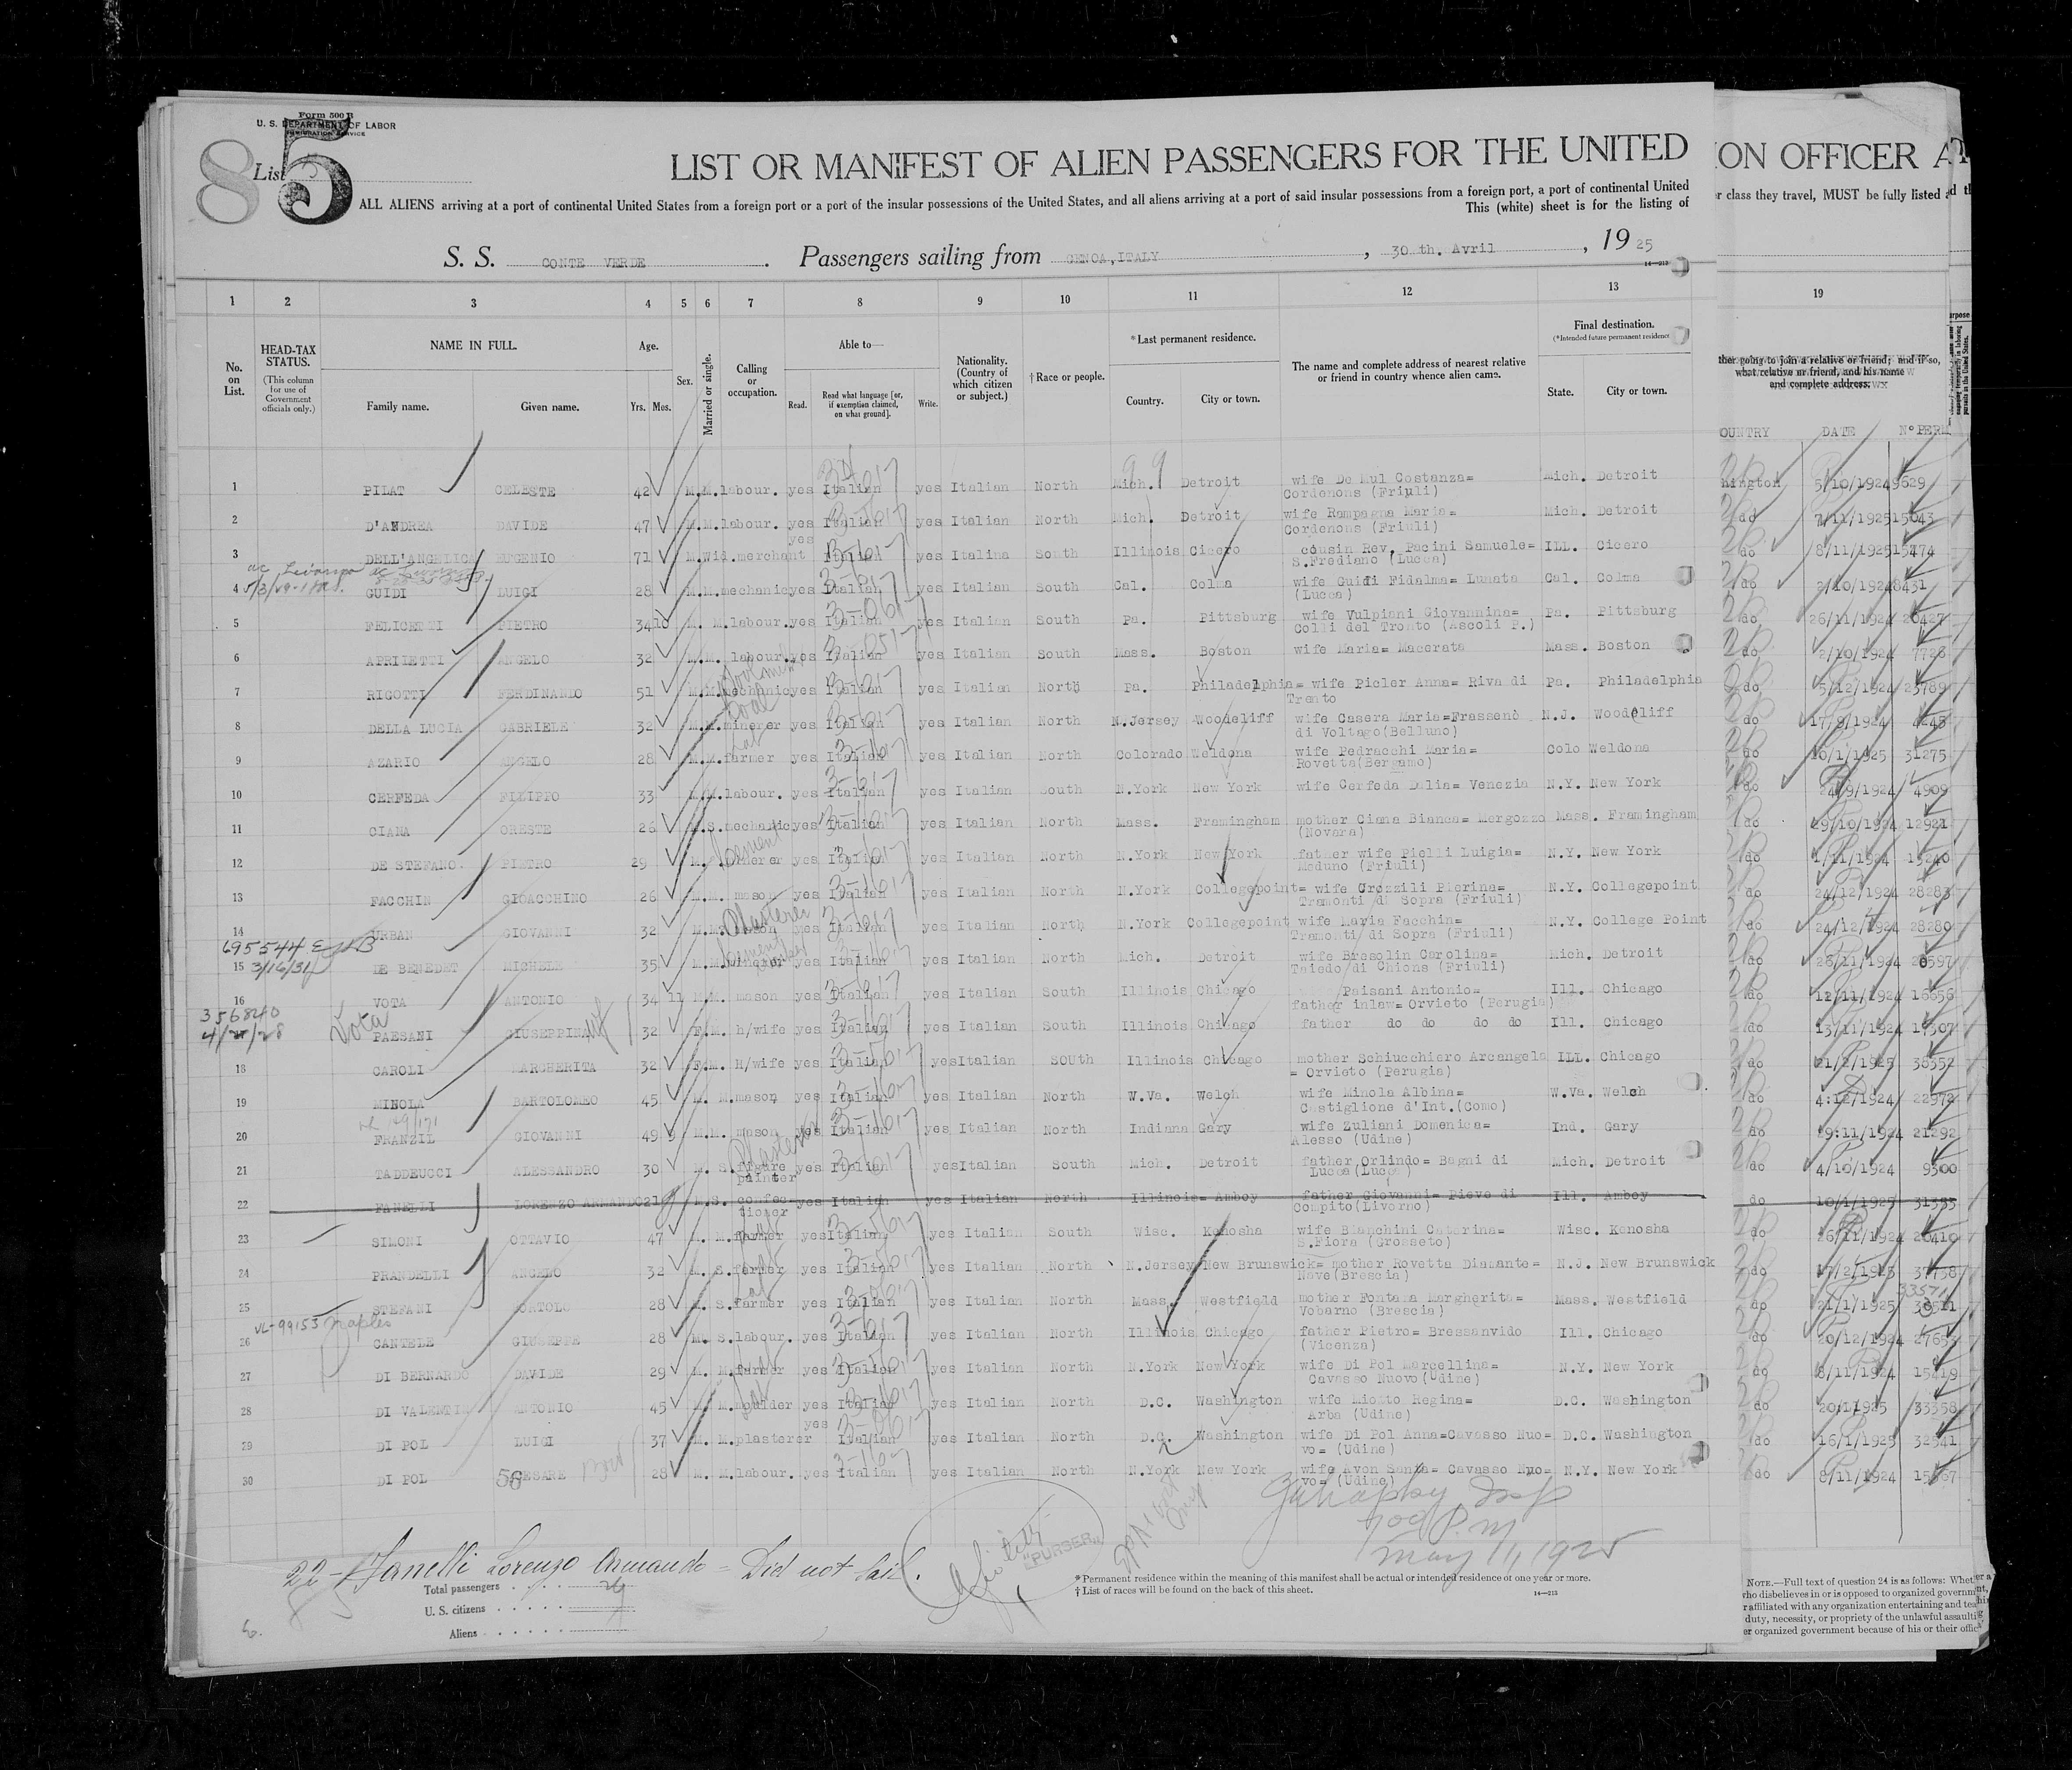 Form 500 B
U. S. DEPARTMENT OF LABOR
IMMIGRATION SERVICE
8
List 5
LIST OR MANIFEST OF ALIEN PASSENGERS FOR THE UNITED
ION OFFICER A
ALL ALIENS arriving at a port of continental United States from a foreign port or a port of the insular possessions of the United States, and all aliens arriving at a port of said insular possessions from a foreign port, a port of continental United
r class they travel, MUST be fully listed
This (white) sheet is for the listing of
S. S. CONTE VERDE. Passengers sailing from GENOA, ITALY, 30 th. Avril, 1925
14—213
1 2 3 4 5 6 7 8 9 10 11 12 13 19
No. on List.
HEAD-TAX STATUS.
(This column for use of Government officials only.)
NAME IN FULL.
Family name. Given name.
Age.
Yrs. Mos.
Sex.
Married or single.
Calling or occupation.
Able to—
Read. Read what language [or, if exemption claimed, on what ground]. Write.
Nationality. (Country of which citizen or subject.)
†Race or people.
*Last permanent residence.
Country. City or town.
The name and complete address of nearest relative or friend in country whence alien came.
Final destination.
(*Intended future permanent residence
State. City or town.
ther going to join a relative or friend; and if so, what relative or friend, and his name and complete address.
OUNTRY DATE N° PERM
1 PILAT CELESTE 42 M. M. labour. yes Italian yes Italian North Mich. Detroit wife De Mul Costanza= Cordenons (Friuli) Mich. Detroit hington 5/10/1924 9629
2 D'ANDREA DAVIDE 47 M. M. labour. yes Italian yes Italian North Mich. Detroit wife Rampagna Maria= Cordenons (Friuli) Mich. Detroit do 7/11/1925 15043
3 DELL'ANGELICA EUGENIO 71 M. wid. merchant yes Italian yes Italina South Illinois Cicero cousin Rev. Pacini Samuele= S.Frediano (Lucca) ILL. Cicero do 8/11/1925 15474
4 GUIDI LUIGI 28 M. M. mechanic yes Italian yes Italian South Cal. Colma wife Guidi Fidalma= Lunata (Lucca) Cal. Colma do 2/10/1924 8431
5 FELICETTI PIETRO 34 10 M. M. labour. yes Italian yes Italian South Pa. Pittsburg wife Vulpiani Giovannina= Colli del Tronto (Ascoli P.) Pa. Pittsburg do 26/11/1924 20427
6 APRILETTI ANGELO 32 M. M. labour. yes Italian yes Italian South Mass. Boston wife Maria= Macerata Mass. Boston do 2/10/1924 7728
7 RIGOTTI FERDINANDO 51 M. M. mechanic yes Italian yes Italian North Pa. Philadelphia= wife Picler Anna= Riva di Trento Pa. Philadelphia do 5/12/1924 23789
8 DELLA LUCIA GABRIELE 32 M. M. minerer yes Italian yes Italian North N.Jersey Woodcliff wife Casera Maria=Frassenè di Voltago(Belluno) N.J. Woodcliff do 17/9/1924 4245
9 AZARIO ANGELO 28 M. M. farmer yes Italian yes Italian North Colorado Weldona wife Pedracchi Maria= Rovetta(Bergamo) Colo Weldona do 10/1/1925 31275
10 CERFEDA FILIPPO 33 M. M. labour. yes Italian yes Italian South N.York New York wife Cerfeda Dalia= Venezia N.Y. New York do 24/9/1924 4909
11 CIANA ORESTE 26 M. S. mechanic yes Italian yes Italian North Mass. Framingham mother Ciana Bianca= Mergozzo (Novara) Mass. Framingham do 29/10/1924 12921
12 DE STEFANO. PIETRO 29 M. minerer yes Italian yes Italian North N.York New York father wife Pielli Luigia= Meduno (Friuli) N.Y. New York do 1/11/1924 13240
13 FACCHIN GIOACCHINO 26 M. M. mason yes Italian yes Italian North N.York Collegepoint= wife Crozzili Pierina= Tramonti di Sopra (Friuli) N.Y. Collegepoint do 24/12/1924 28283
14 URBAN GIOVANNI 32 M. M. mason yes Italian yes Italian North N.York Collegepoint wife Maria Facchin= Tramonti di Sopra (Friuli) N.Y. College Point do 24/12/1924 28280
695544
15 3/16/34 DE BENEDET MICHELE 35 M. M. minerer yes Italian yes Italian North Mich. Detroit wife Bresolin Carolina= Taiedo di Chions (Friuli) Mich. Detroit do 26/11/1924 20597
16 VOTA ANTONIO 34 11 M. M. mason yes Italian yes Italian South Illinois Chicago Paisani Antonio= father inlaw= Orvieto (Perugia) Ill. Chicago do 12/11/1924 16656
356840
4/27/28 Vota PAESANI GIUSEPPINA wf 32 F. M. h/wife yes Italian yes Italian South Illinois Chicago father do do do do Ill. Chicago do 13/11/1924 17307
18 CAROLI MARGHERITA 32 F. M. H/wife yes Italian yes Italian SOUth Illinois Chicago mother Schiucchiero Arcangela = Orvieto (Perugia) ILL. Chicago do 21/2/1925 38352
19 MINOLA BARTOLOMEO 45 M. M. mason yes Italian yes Italian North W.Va. Welch wife Minola Albina= Castiglione d'Int.(Como) W.Va. Welch do 4:12/1924 22972
20 FRANZIL GIOVANNI 49 9 M. M. mason yes Italian yes Italian North Indiana Gary wife Zuliani Domenica= Alesso (Udine) Ind. Gary do 29:11/1924 21292
21 TADDEUCCI ALESSANDRO 30 M. S. figure painter yes Italian yes Italian South Mich. Detroit father Orlindo= Bagni di Lucca(Lucca) Mich. Detroit do 4/10/1924 9300
22 FANELLI LORENZO ARMANDO 21 M. S. confectioner yes Italian yes Italian North Illinois= Amboy father Giovanni= Pieve di Compito(Livorno) Ill. Amboy do 10/1/1925 31355
23 SIMONI OTTAVIO 47 M. M. farmer yes Italian yes Italian South Wisc. Kenosha wife Bianchini Caterina= S.Fiora (Grosseto) Wisc. Kenosha do 26/11/1924 20410
24 PRANDELLI ANGELO 32 M. S. farmer yes Italian yes Italian North N.Jersey New Brunswick= mother Rovetta Diamante= Nave(Brescia) N.J. New Brunswick do 17/2/1925 37758
25 STEFANI BORTOLO 28 M. S. farmer yes Italian yes Italian North Mass. Westfield mother Fontana Margherita= Vobarno (Brescia) Mass. Westfield do 21/1/1925 33571
VL-99153 Naples
26 CANTELE GIUSEPPE 28 M. S. labour. yes Italian yes Italian North Illinois Chicago father Pietro= Bressanvido (Vicenza) Ill. Chicago do 20/12/1924 27653
27 DI BERNARDO DAVIDE 29 M. M. farmer yes Italian yes Italian North N.York New York wife Di Pol Marcellina= Cavasso Nuovo(Udine) N.Y. New York do 8/11/1924 15419
28 DI VALENTIN ANTONIO 45 M. M. moulder yes Italian yes Italian North D.C. Washington wife Miotto Regina= Arba (Udine) D.C. Washington do 20/1/1925 33358
29 DI POL LUIGI 37 M. M. plasterer yes Italian yes Italian North D.C. Washington wife Di Pol Anna=Cavasso Nuovo= (Udine) D.C. Washington do 16/1/1925 32541
30 DI POL CESARE 28 M. M. labour. yes Italian yes Italian North N.York New York wife Avon Santa= Cavasso Nuovo= (Udine) N.Y. New York do 8/11/1924 15367
56
700 P.M
May 11, 1925
22- Fanelli Lorenzo Armando = Did not sail.
"PURSER"
Total passengers
U. S. citizens
Aliens
*Permanent residence within the meaning of this manifest shall be actual or intended residence of one year or more.
†List of races will be found on the back of this sheet.
14—213
NOTE.—Full text of question 24 is as follows: Whet
who disbelieves in or is opposed to organized governm
r affiliated with any organization entertaining and tea
duty, necessity, or propriety of the unlawful assaulti
er organized government because of his or their offic